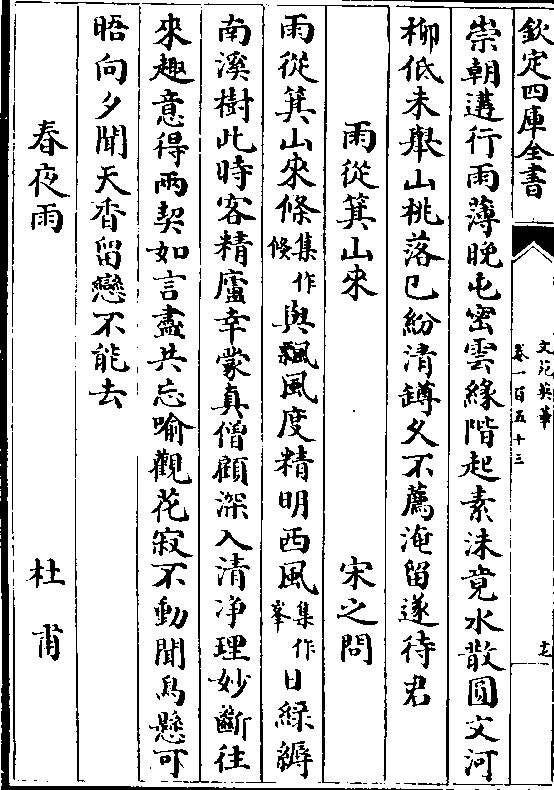 欽定四庫全書
文苑英華
卷一百五十三
崇朝遘行雨薄晚屯密雲緣階起素沫竟水散圓文河
柳低未舉山桃落已紛清罇久不薦淹留遂待君
雨從箕山來 宋之問
雨從箕山來倏集作倐與飄風度精明西風集作峯日綠縟
南溪樹此時客精廬幸蒙真僧顧深入清净理妙斷往
來趣意得兩契如言盡共忘喻觀花寂不動聞鳥懸可
晤向夕聞天香留戀不能去
春夜雨 杜甫